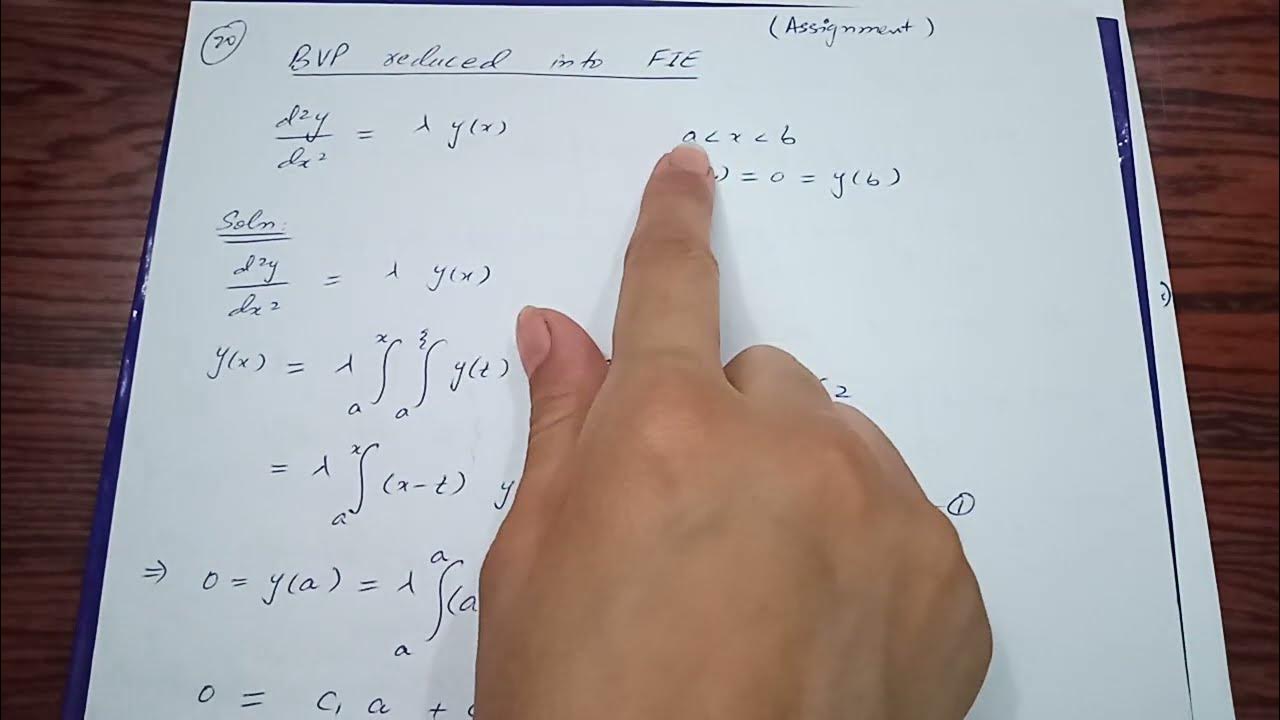 (Assignment)
20
BVP reduced into FIE
d²y/dx² = λ y(x)
a < x < b
) = 0 = y(b)
Soln:
d²y/dx² = λ y(x)
y(x) = λ ∫ₐˣ ∫ₐ^ξ y(t) 2
= λ ∫ₐˣ (x-t) y — ①
⇒ 0 = y(a) = λ ∫ₐᵃ (a
0 = C₁ a +